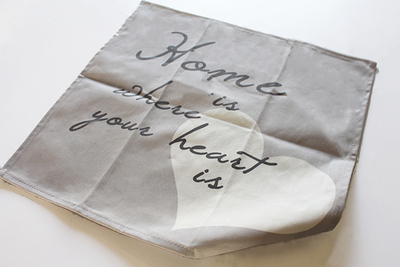 Home
is
where
your heart
is